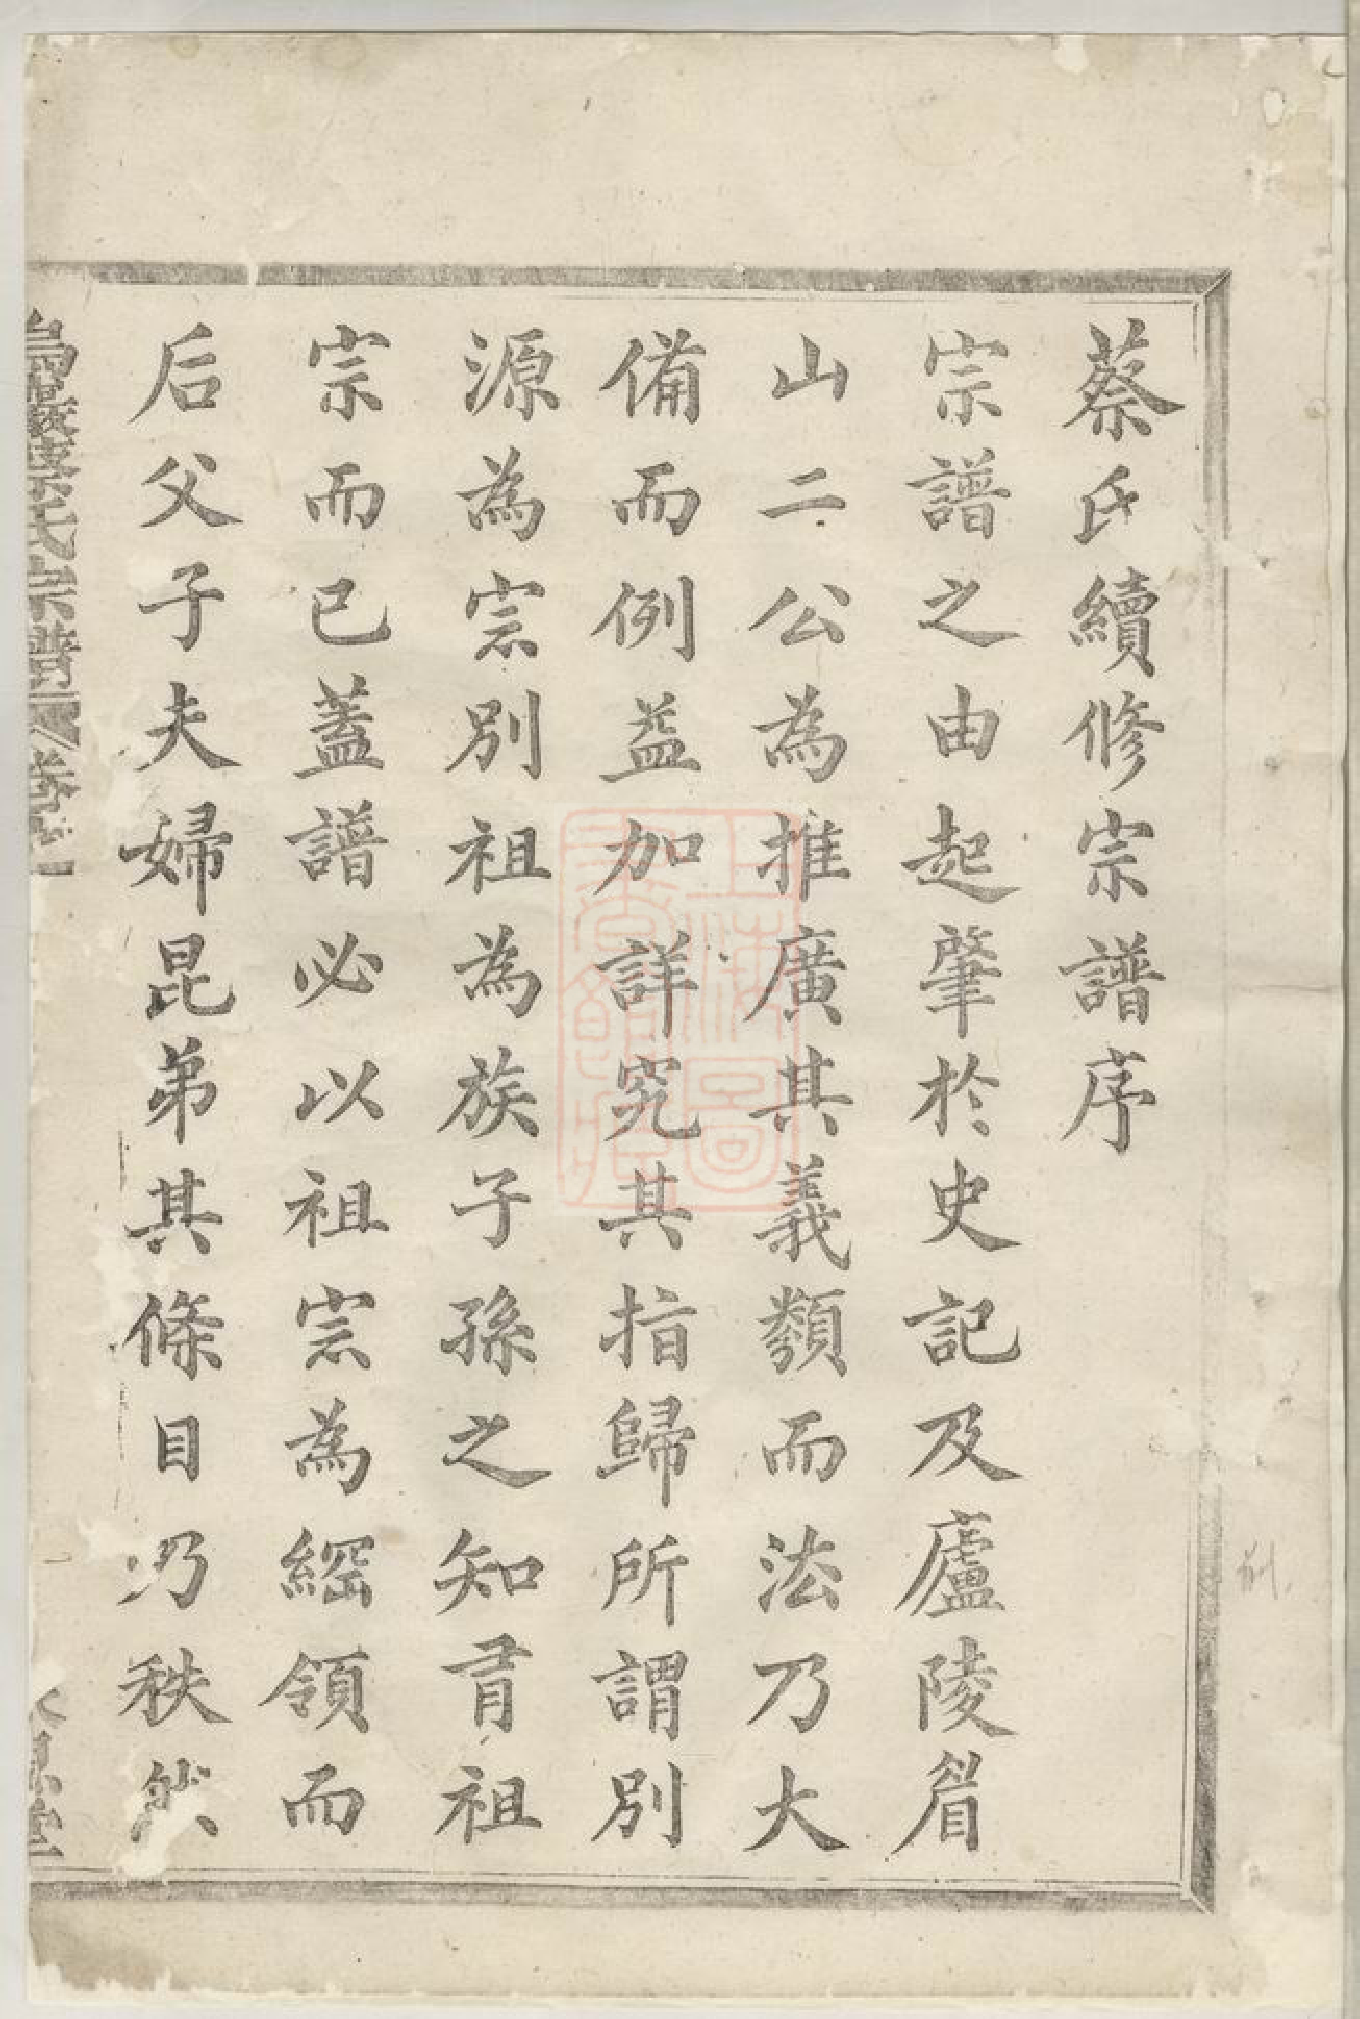 蔡氏續修宗譜序
宗譜之由起肇於史記及廬陵眉
山二公為推廣其義類而法乃大
備而例益加詳究其指歸所謂別
源為宗別祖為族子孫之知有祖
宗而已蓋譜必以祖宗為綱領而
后父子夫婦昆弟其條目乃秩然
蔡氏宗譜
上海圖書館藏